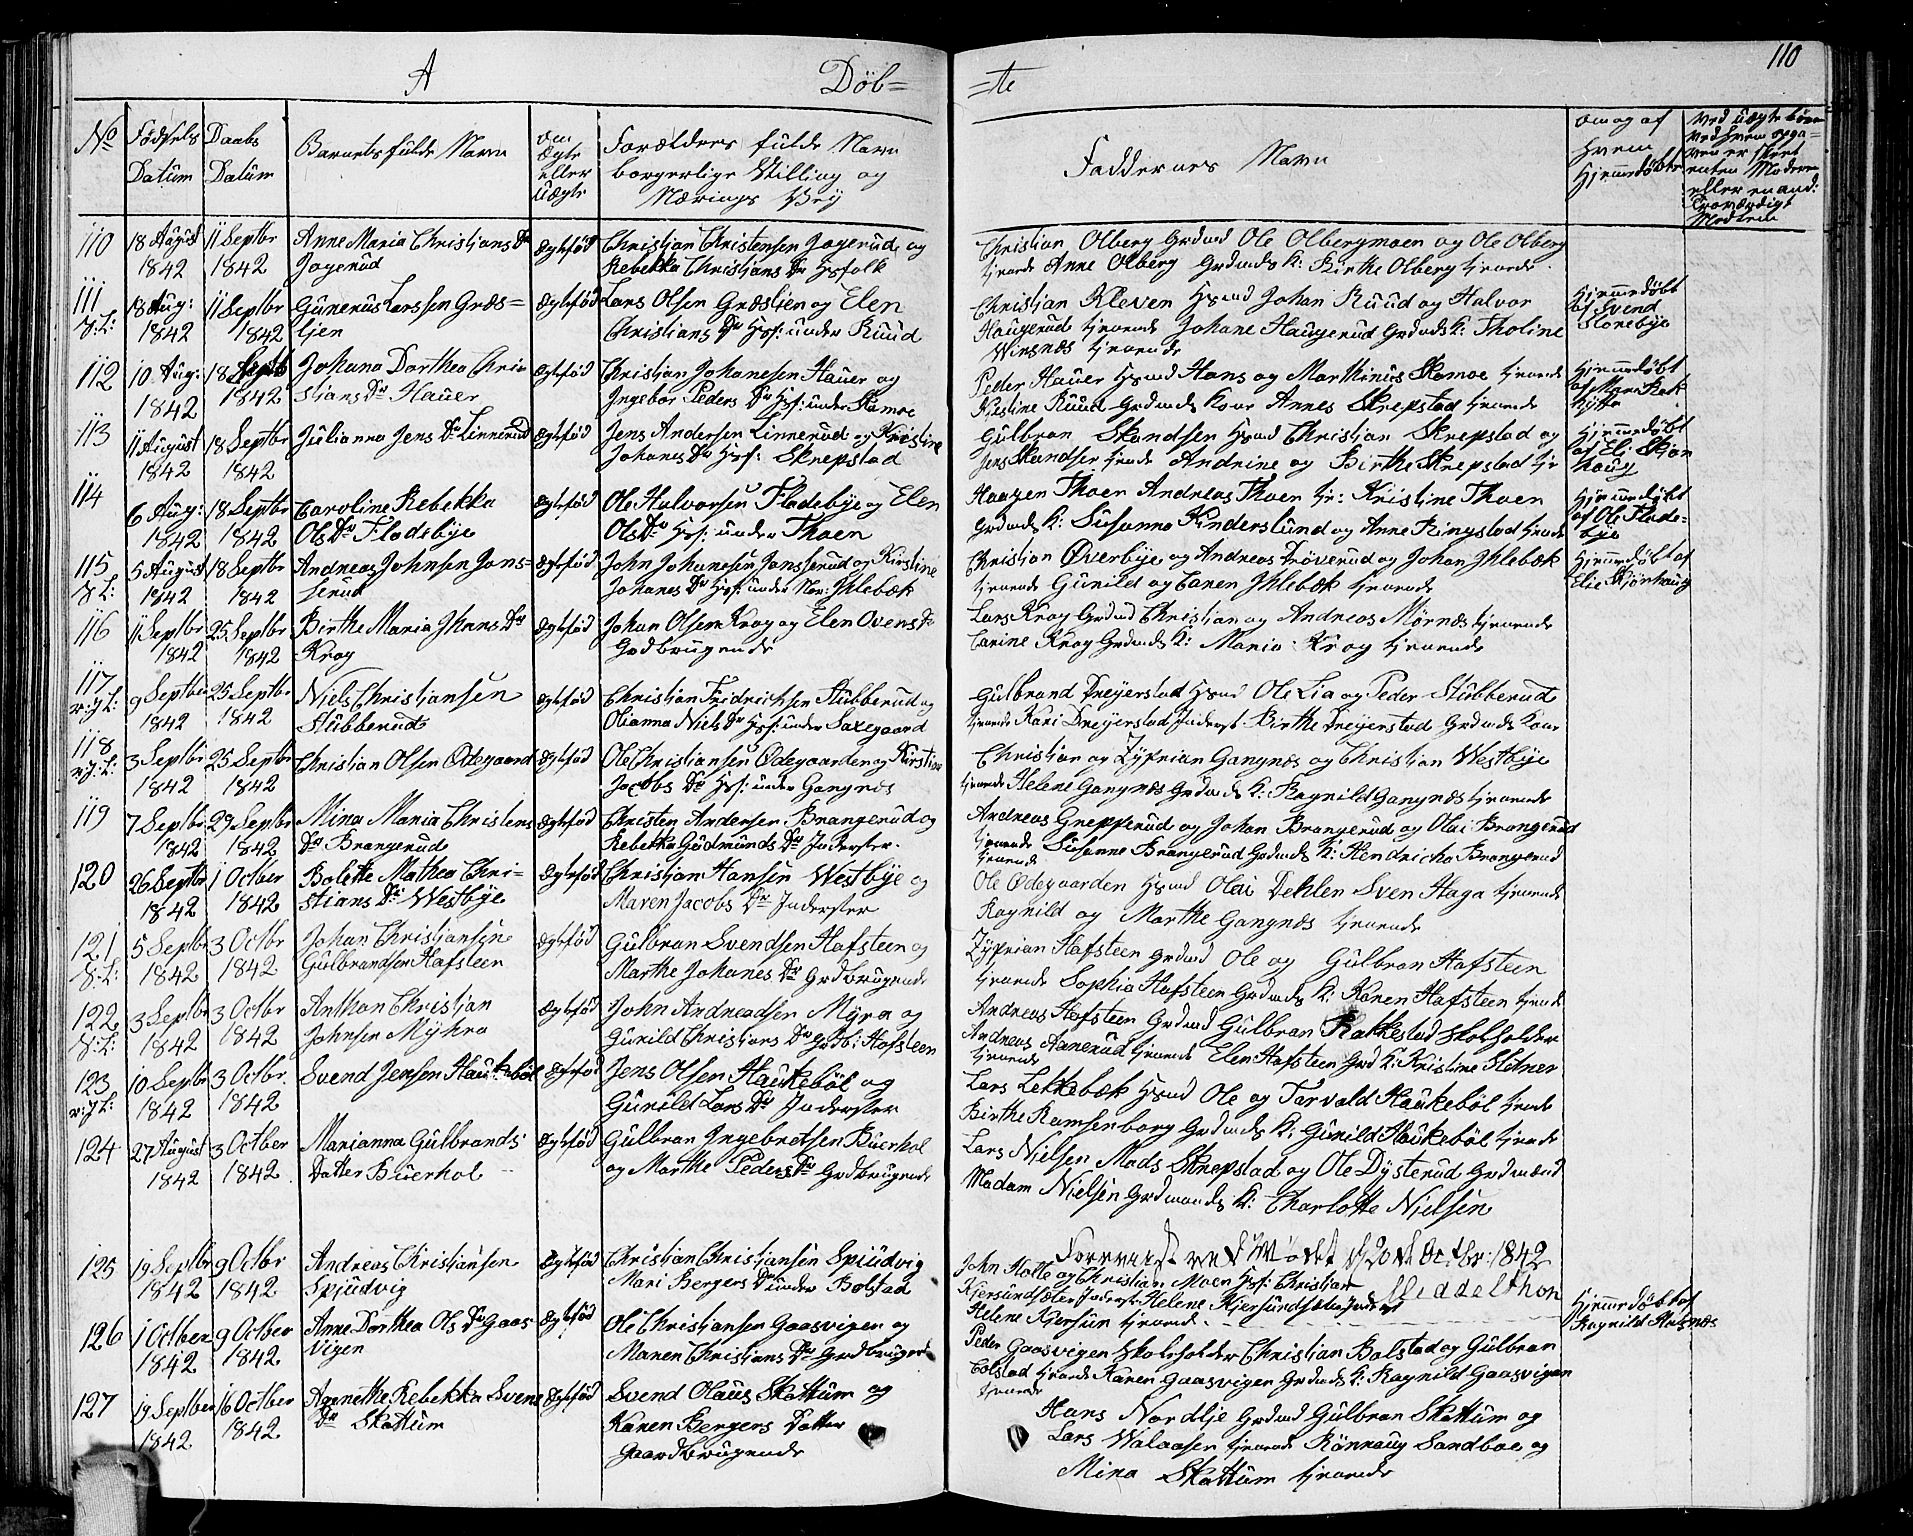 A Döb= =te 110
No
Födsels Datum
Daabs Datum
Barnets fulde Navn
om Ægte eller Uægte
Forældres fulde Navn borgerlige Stilling og Nærings Vej
Faddernes Navn
om og af hvem Hjemmedöbte
110 18 August 1842 11 Septbr 1842 Anne Maria Christians Dr Jogerud Ægtefød Christian Christensen Jogerud og Rebekka Christians Dr Hsfolk
Christian Olberg Grdmd Ole Olbergmoen og Ole Olberg
tjenende Anne Olberg Grdmds K: Birthe Olberg tjenende
111 18 Aug: 1842 11 Septbr 1842 Gunerus Larssen Græs=lien Ægtefød Lars Olsen Græslien og Elen Christians Dr Hsf: under Ruud
Christian Kleven Hsmd Johan Ruud og Halvor
Haugerud tjenende Johane Haugerud Grdmds K: Tholine
tjenende
Hjemmedöbt af Svend
112 10 Aug: 1842 18 Septb 1842 Johana Dorthea Christians Dr Hauer Ægtefød Christian Johanesen Hauer og Ingebor Peders Dr Hsf: under Skamoe
Peder Hauer Hsmd Hans og Marthinus Skamoe tjenende
Kirstine Ruud Grdmds Kone Annes Skrepstad tjenende
Hjemmedöbt af
113 11 August 1842 18 Septbr 1842 Julianna Jens Dr Linnerud Ægtefød Jens Andersen Linnerud og Kristine Johanes Dr Hsf: Skrepstad
Gulbran Skandsen Hsmd Christian Skrepstad og
Jens Skandser Andrine og Birthe Skrepstad
Hjemmedöbt af Eli
114 6 Aug: 1842 18 Septbr 1842 Caroline Rebekka Ols Dr Fladebye Ægtefød Ole Halvorsen Fladebye og Elen Ols Dr Hsf: under Thoen
Haagen Thoen Andreas Thoen tj: Kristine Thoen
Grdmds K: Susanna Kinderslund og Anne Ringstad tjende
Hjemmedöbt af Ole Fladebye
115 5 August 1842 18 Septbr 1842 Andreas Johnsen Jons=serud Ægtefød John Johanesen Jonsserud og Kirstine Johanes Dr Hsf: under Nor: Ihlebæk
Christian Overbye og Andreas Tröverud og Johan Ihlebæk
tjenende Gunild og Caren Ihlebæk tjenende
Hjemmedöbt af Elie Skjönhaug
116 11 Septbr 1842 25 Septbr 1842 Birthe Maria Jhans Dr Krog Ægtefød Johan Olsen Krog og Elen Ovens Dr Grdbrugende
Lars Krog Grdmd Christian og Andreas Mörnes tjenende
Carine Krog Grdmds K: Maria Krog tjenende
117 9 Septbr 1842 25 Septbr 1842 Niels Christiansen Stubberud Ægtefød Christian Fredrichsen Stubberud og Olianna Niels Dr Hsf: under Saxegaard
Gulbrand Dreyerstad Hsmd Ole Lia og Peder Stubberud
tjenende Kari Dreyerstad Inderst Birthe Dreyerstad Grdmds Kone
118 3 Septbr 1842 25 Septbr 1842 Christian Olsen Ödegaard Ægtefød Ole Christiansen Ödegaarden og Kirstine Jacobs Dr Hsf: under Gangnæs
Christian og Zyprian Gangnæs og Christian Westbye
tjenende Helene Gangnæs Grdmds K: Ragnild Gangnæs tjenende
119 7 Septbr 1842 29 Septbr 1842 Mina Maria Christens Dr Brangerud Ægtefød Christen Andersen Brangerud og Rebekka Gudmunds Dr Inderster
Andreas Grepperud og Johan Brangerud og Olai Brangerud
tjenende Susanne Brangerud Grdmds K: Hendricha Brangerud
tjenende
120 26 Septbr 1842 1 Octber 1842 Bolette Mathea Christians Dr Westbye Ægtefød Christian Hansen Westbye og Maren Jacobs Dr Inderster
Ole Ödegaarden Hsmd Olai Dehlen Sven Haga tjenende
Ragnild og Marthe Gangnæs tjenende
121 5 Septbr 1842 3 Octbr 1842 Johan Christiansen Gulbrandsen Hafsteen Ægtefød Gulbran Svendsen Hafsteen og Marthe Johanes Dr Grdbrugende
Zyprian Hafsteen Grdmd Ole og Gulbran Hafsteen
tjenende Sophia Hafsteen Grdmds K: Karen Hafsteen tjende
122 3 Septbr 1842 3 Octbr 1842 Anthon Christian Johnsen Myhra Ægtefød John Andreadsen Myra og Gunild Christians Dr Grdb: Hafsteen
Andreas Hafsteen Grdmd Gulbran Rakkestad Skolholder
Andreas Aanerud tjenende Elen Hafsteen Grd K: Kristine Aldner
tjenende
123 10 Septbr 1842 3 Octbr 1842 Svend Jensen Haukeböl Ægtefød Jens Olsen Haukeböl og Gunild Lars Dr Inderster
Lars Lekkebæk Hsmd Ole og Torvald Haukeböl tjende
Birthe Ramsenborg Grdmds K: Gunild Haukeböl tjende
124 27 August 1842 3 Octber 1842 Marianna Gulbrands Datter Buerhol Ægtefød Gulbran Ingebretsen Buerhol og Marthe Peders Dr Grdbrugende
Lars Nielsen Mads Skrepstad og Ole Dysterud Grdmænd
Madam Nielsen Grdmands K: Charlotte Nielsen
Octbr: 1842
Middelthon
125 19 Septbr 1842 9 Octbr 1842 Andreas Christiansen Spjudvig Ægtefød Christian Christiansen Spjudvig Mari Bergers Dr under Bolstad
John Holte og Christian Moen Hsf: Christian
Kjersundseter Inderst Helene Kjersundseter
Helene Kjersun tjenende
126 1 Octber 1842 9 Octber 1842 Anne Dorthea Ols Dr Gaasvigen Ægtefød Ole Christiansen Gaasvigen og Maren Christians Dr Grdbrugende
Peder Gaasvigen Skoleholder Christian Bolstad og Gulbran
Bolstad tjenende Karen Gaasvigen Grdmds K: Ragnild Gaasvigen
tjenende
Hjemmedöbt af Ragnild
127 19 Septber 1842 16 Octber 1842 Agnethe Rebekka Svens Dr Skattum Ægtefød Svend Olaus Skattum og Karen Bergers Datter Gaardbrugende
Hans Nordlje Grdmd Gulbran Skattum og
Lars Walaasen tjenende Rönnaug Sandboe og
Mina Skattum tjenende